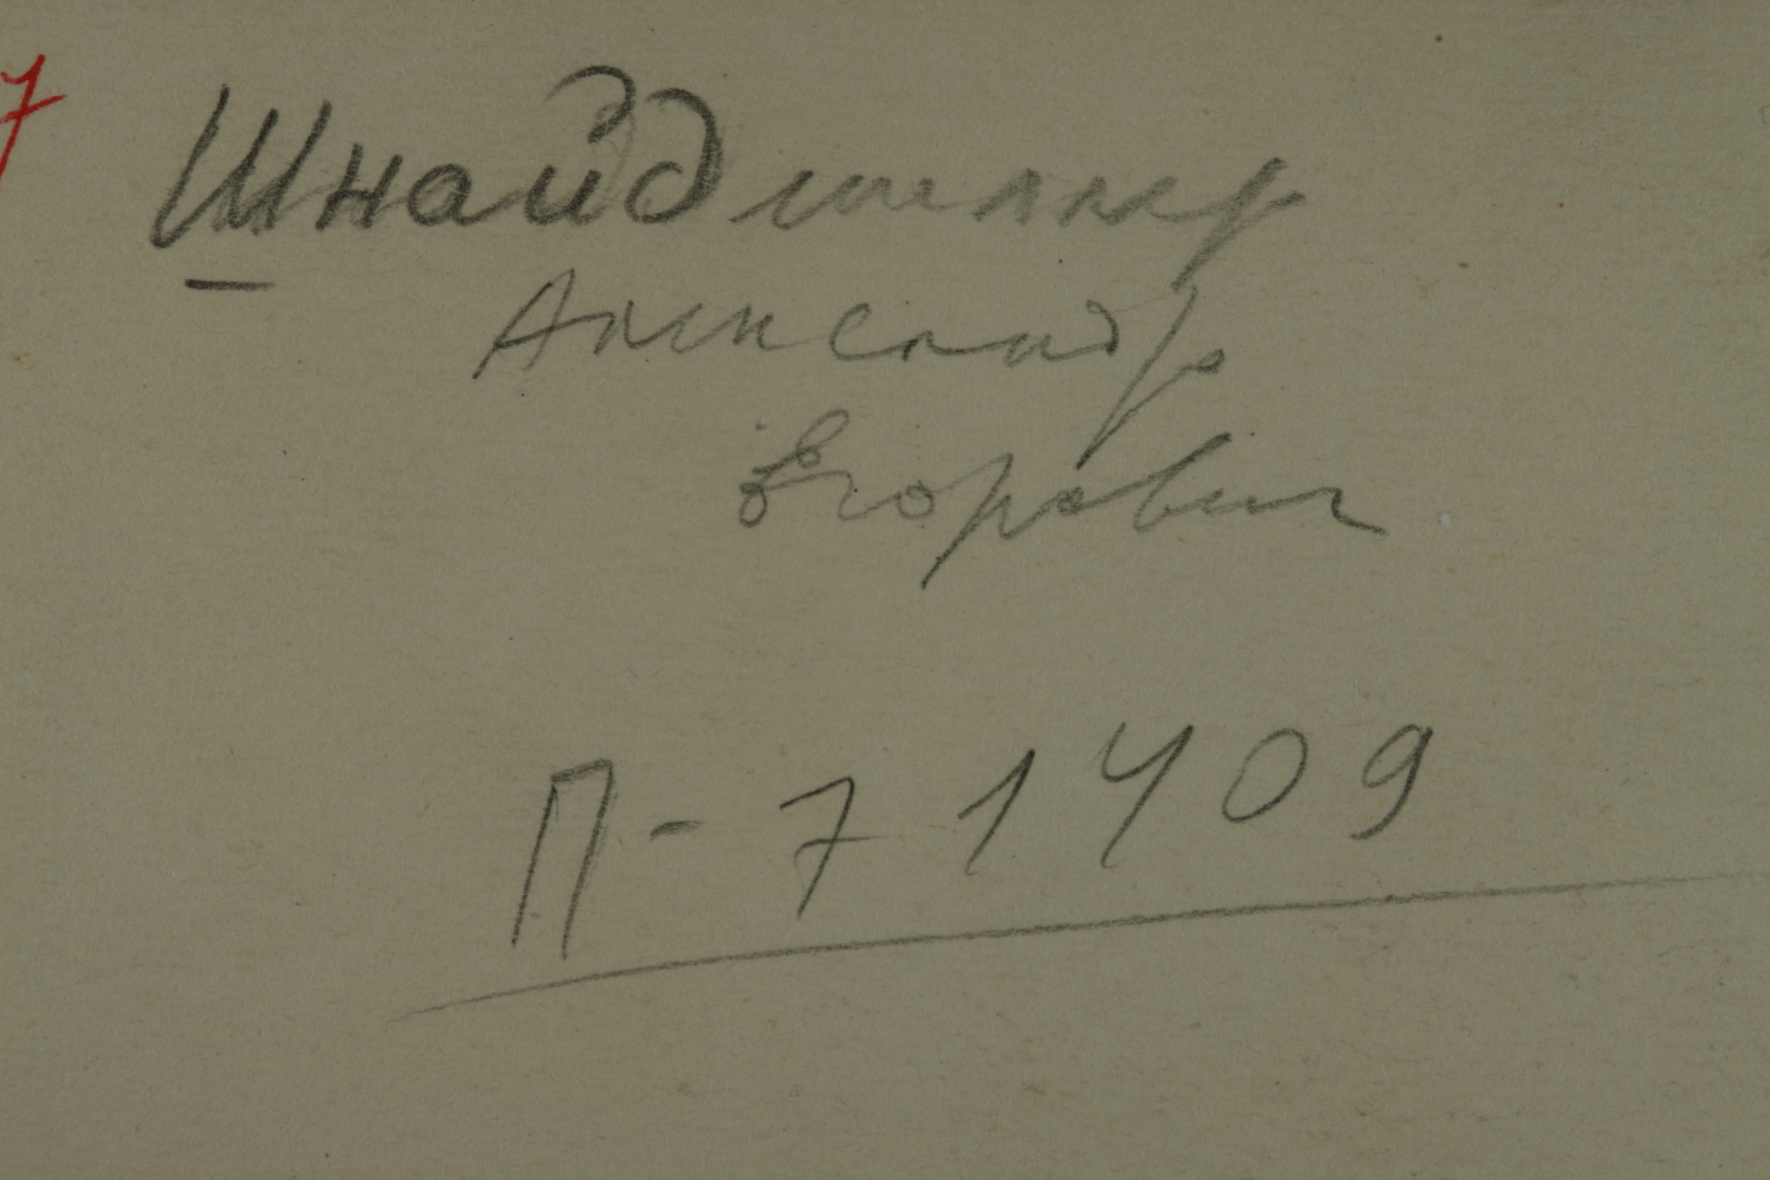 7
Шнайдмиллер
Александр
Егорович
П-71409